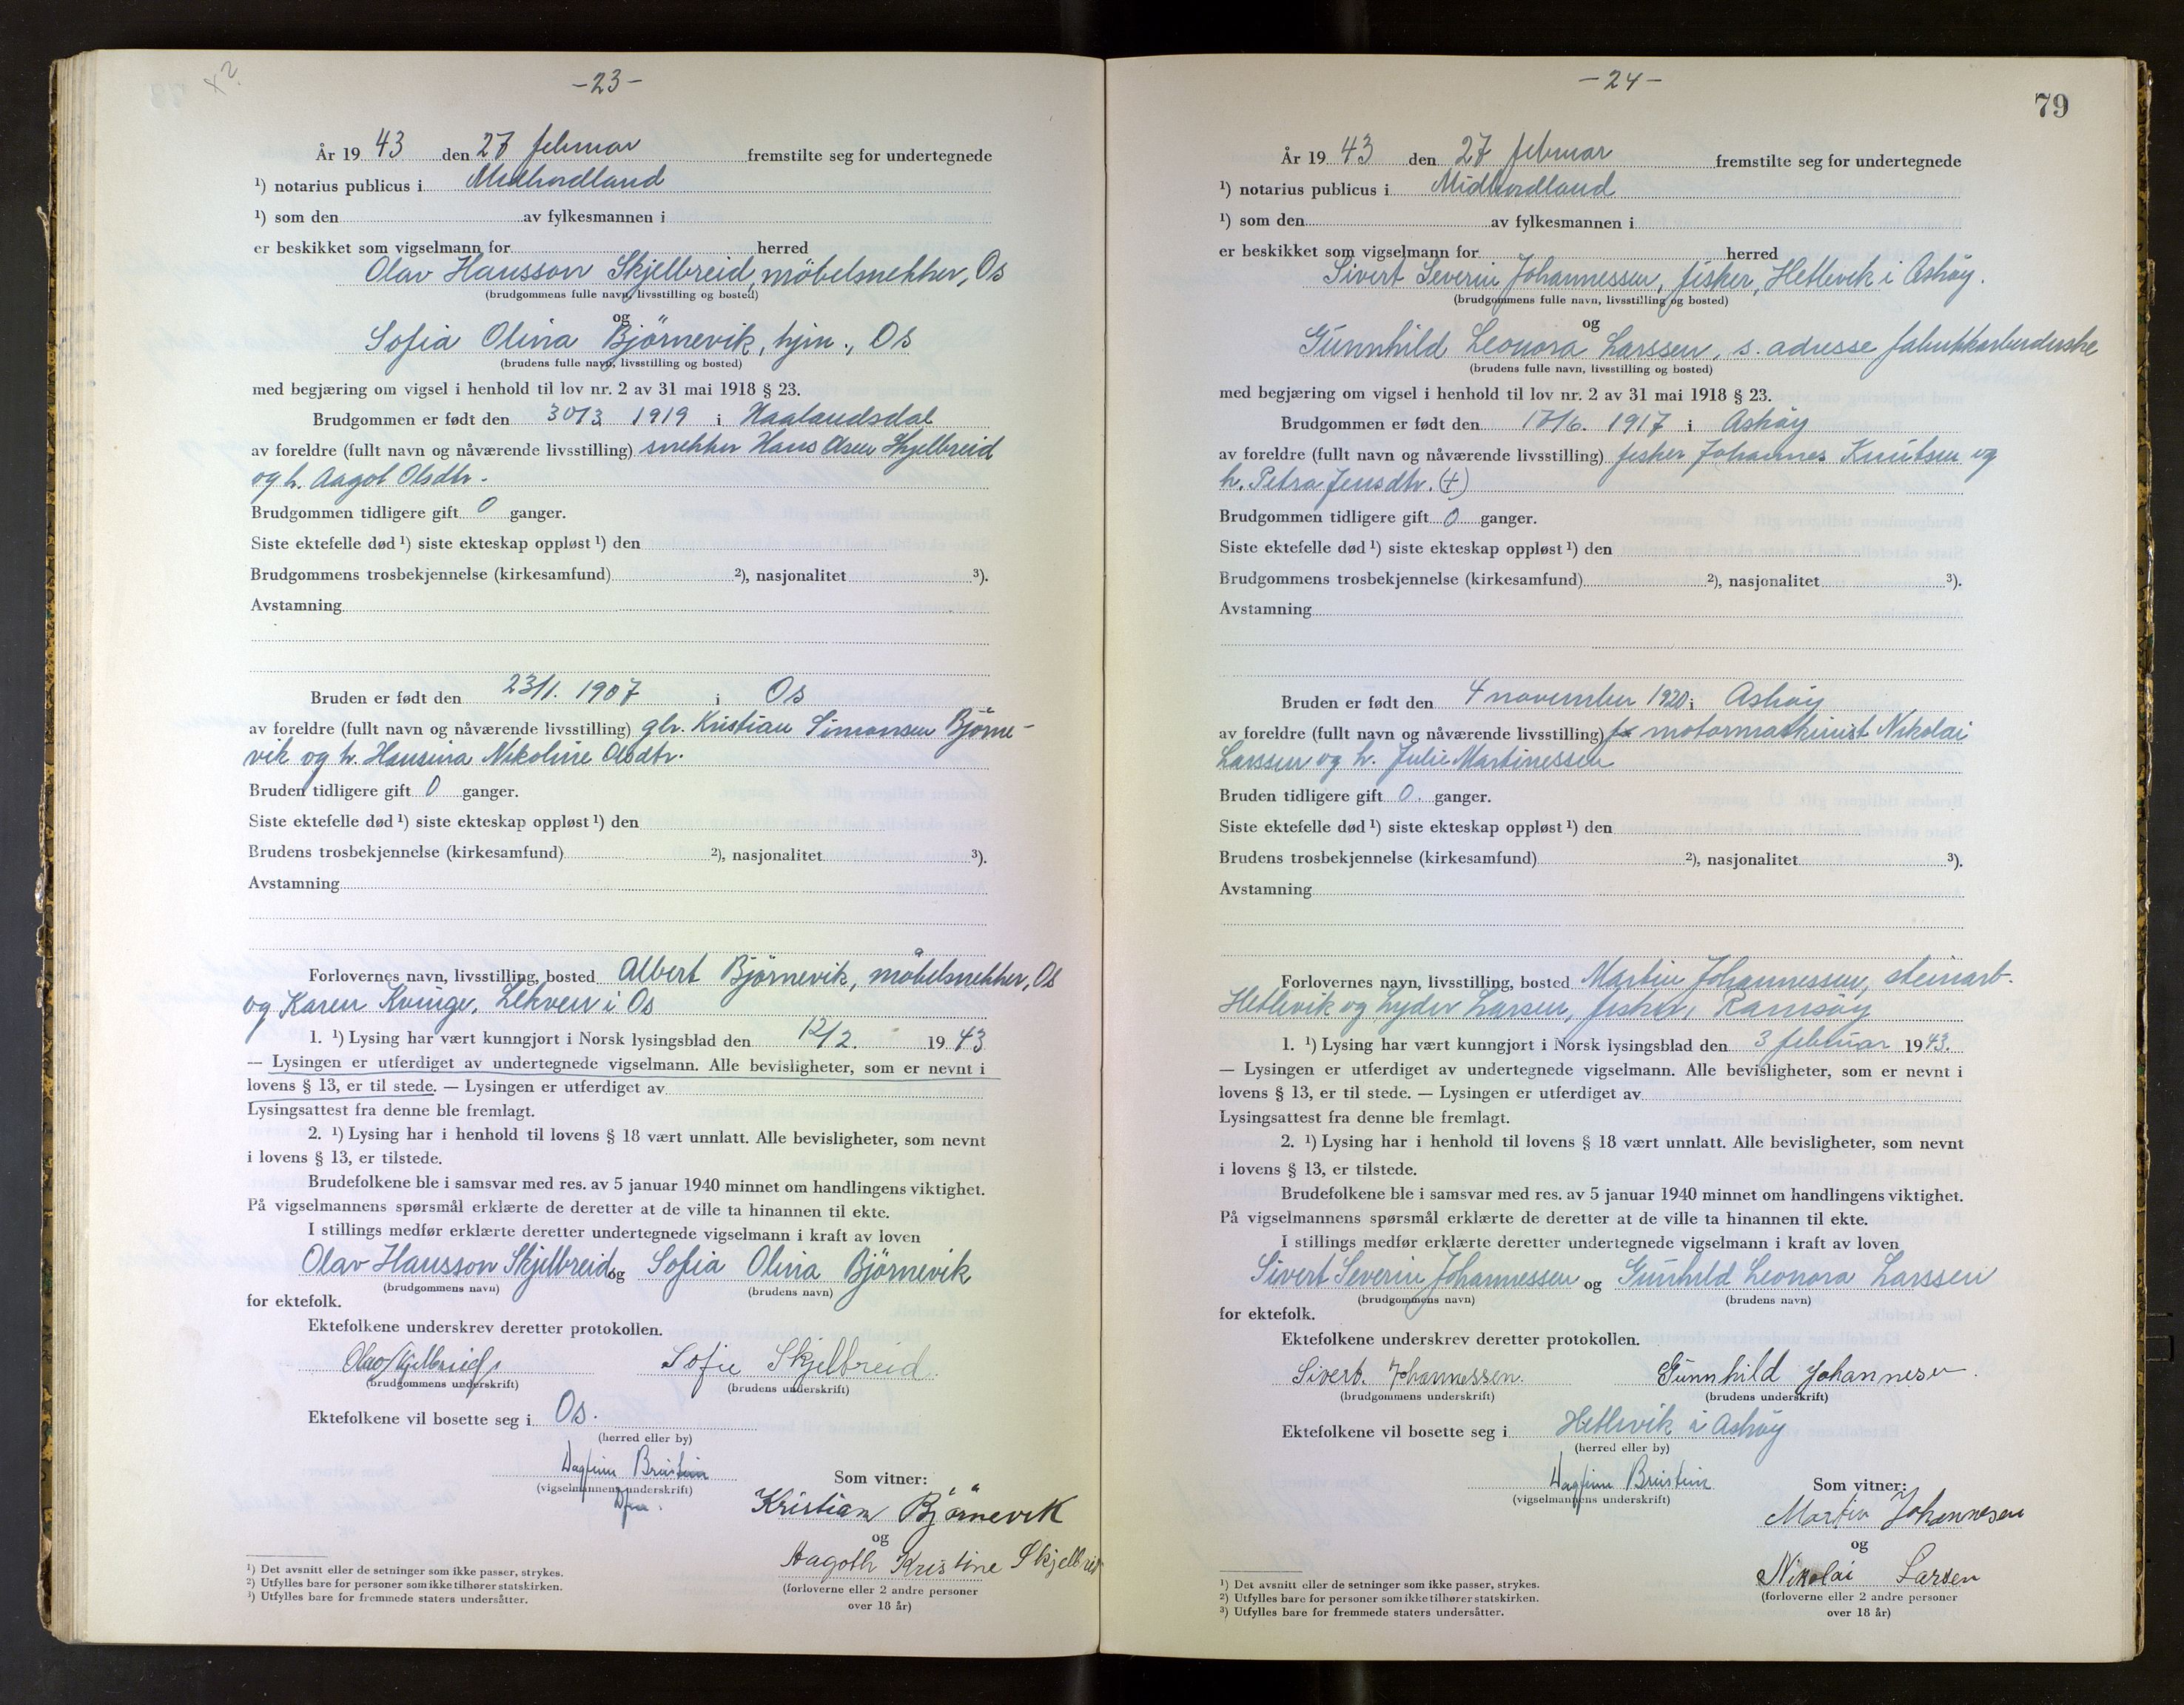 -23-
År 19 43 den 27 februar fremstilte seg for undertegnede
¹) notarius publicus i Midhordland
¹) som den av fylkesmannen i
er beskikket som vigselmann for herred
Olav Hansson Skjelbreid, möbelsnekker, Os
(brudgommens fulle navn, livsstilling og bosted)
og
Sofia Olina Björnevik, hjm., Os
(brudens fulle navn, livsstilling og bosted)
med begjæring om vigsel i henhold til lov nr. 2 av 31 mai 1918 § 23.
Brudgommen er født den 30/3 1919 i Haalandsdal
av foreldre (fullt navn og nåværende livsstilling) snekker Hans Olsen Skjelbreid
og h. Aagot Olsdtr.
Brudgommen tidligere gift 0 ganger.
Siste ektefelle død ¹) siste ekteskap oppløst ¹) den
Brudgommens trosbekjennelse (kirkesamfund) ²), nasjonalitet ³).
Avstamning
Bruden er født den 23/1. 1907 i Os
av foreldre (fullt navn og nåværende livsstilling) gbr. Kristian Simonsen Björne-
vik og h. Hansina Nikoline Olsdtr.
Bruden tidligere gift 0 ganger.
Siste ektefelle død ¹) siste ekteskap oppløst ¹) den
Brudens trosbekjennelse (kirkesamfund) ²), nasjonalitet ³).
Avstamning
Forlovernes navn, livsstilling, bosted Albert Björnevik, möbelsnekker, Os
og Karen Kvinge, Lekven i Os
1. ¹) Lysing har vært kunngjort i Norsk lysingsblad den 12/2. 19 43
— Lysingen er utferdiget av undertegnede vigselmann. Alle bevisligheter, som er nevnt i
lovens § 13, er til stede. — Lysingen er utferdiget av
Lysingsattest fra denne ble fremlagt.
2. ¹) Lysing har i henhold til lovens § 18 vært unnlatt. Alle bevisligheter, som nevnt
i lovens § 13, er tilstede.
Brudefolkene ble i samsvar med res. av 5 januar 1940 minnet om handlingens viktighet.
På vigselmannens spørsmål erklærte de deretter at de ville ta hinannen til ekte.
I stillings medfør erklærte deretter undertegnede vigselmann i kraft av loven
Olav Hansson Skjelbreid og Sofia Olina Björnevik
(brudgommens navn) (brudens navn)
for ektefolk.
Ektefolkene underskrev deretter protokollen.
Olav Skjelbreid Sofie Skjelbreid
(brudgommens underskrift) (brudens underskrift)
Ektefolkene vil bosette seg i Os.
(herred eller by)
Dagfinn
(vigselmannens underskrift)
Som vitner:
Kristian Björnevik
og
Aagoth Kristine Skjelbreid
(forloverne eller 2 andre personer
over 18 år)
¹) Det avsnitt eller de setninger som ikke passer, strykes.
²) Utfylles bare for personer som ikke tilhører statskirken.
³) Utfylles bare for fremmede staters undersåtter.
-24-
79
År 19 43 den 27 februar fremstilte seg for undertegnede
¹) notarius publicus i Midhordland
¹) som den av fylkesmannen i
er beskikket som vigselmann for herred
Sivert Severin Johannessen, fisker, Hetlevik i Askøy.
(brudgommens fulle navn, livsstilling og bosted)
og
Gunnhild Leonora Larssen, s. adresse fabrikkarbeiderske
(brudens fulle navn, livsstilling og bosted)
med begjæring om vigsel i henhold til lov nr. 2 av 31 mai 1918 § 23.
Brudgommen er født den 17/6. 1917 i Askøy
av foreldre (fullt navn og nåværende livsstilling) fisker Johannes Knutsen og
h. Petra Jensdtr. (+)
Brudgommen tidligere gift 0 ganger.
Siste ektefelle død ¹) siste ekteskap oppløst ¹) den
Brudgommens trosbekjennelse (kirkesamfund) ²), nasjonalitet ³).
Avstamning
Bruden er født den 4 november 1920 i Askøy
av foreldre (fullt navn og nåværende livsstilling) motormaskinist Nikolai
Larssen og h. Julie Martinessen
Bruden tidligere gift 0. ganger.
Siste ektefelle død ¹) siste ekteskap oppløst ¹) den
Brudens trosbekjennelse (kirkesamfund) ²), nasjonalitet ³).
Avstamning
Forlovernes navn, livsstilling, bosted Martin Johannessen, steinarb.
Hetlevik og Lyder Larsen, fisker, Ramsøy
1. ¹) Lysing har vært kunngjort i Norsk lysingsblad den 3 februar 19 43.
— Lysingen er utferdiget av undertegnede vigselmann. Alle bevisligheter, som er nevnt i
lovens § 13, er til stede. — Lysingen er utferdiget av
Lysingsattest fra denne ble fremlagt.
2. ¹) Lysing har i henhold til lovens § 18 vært unnlatt. Alle bevisligheter, som nevnt
i lovens § 13, er tilstede.
Brudefolkene ble i samsvar med res. av 5 januar 1940 minnet om handlingens viktighet.
På vigselmannens spørsmål erklærte de deretter at de ville ta hinannen til ekte.
I stillings medfør erklærte deretter undertegnede vigselmann i kraft av loven
Sivert Severin Johannessen og Gunhild Leonora Larssen
(brudgommens navn) (brudens navn)
for ektefolk.
Ektefolkene underskrev deretter protokollen.
Sivert. Johannessen. Gunnhild Johannesen.
(brudgommens underskrift) (brudens underskrift)
Ektefolkene vil bosette seg i Hetlevik i Askøy
(herred eller by)
Dagfinn
(vigselmannens underskrift)
Som vitner:
Martin Johannesen
og
Nikolai Larsen
(forloverne eller 2 andre personer
over 18 år)
¹) Det avsnitt eller de setninger som ikke passer, strykes.
²) Utfylles bare for personer som ikke tilhører statskirken.
³) Utfylles bare for fremmede staters undersåtter.